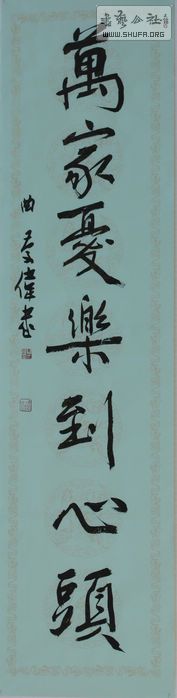 萬家憂樂到心頭
曲慶偉書
書藝公社
WWW.SHUFA.ORG